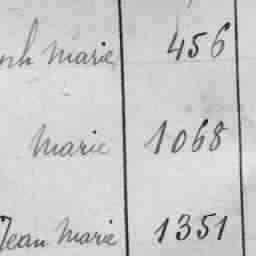 marie 456
Marie 1068
Jean Marie 1351